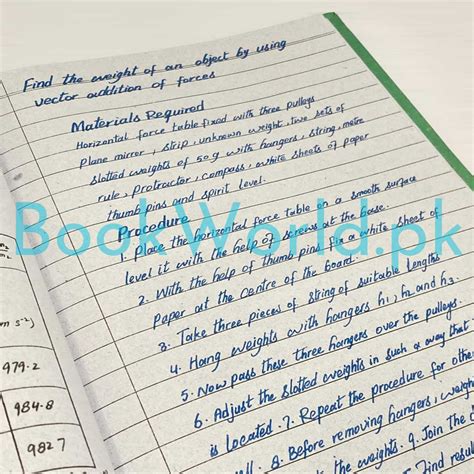 Find the weight of an object by using
vector addition of forces
Materials Required
Horizontal force table fixed with three pulleys
plane mirror, strip, unknown weight, two sets of
slotted weights of 50 g with hangers, string, metre
rule, protractor, compass, white sheets of paper
thumb pins and spirit level.
Procedure
1. Place the horizontal force table in a smooth surface
level it with the help of screws at the base.
2. With the help of thumb pins fix a white sheet of
paper at the centre of the board.
3. Take three pieces of string of suitable lengths
4. Hang weights with hangers h1, h2 and h3.
5. Now pass these three hangers over the pulleys.
6. Adjust the slotted weights in such a way that
is located. 7. Repeat the procedure for othe
8. Before removing hangers, weigh
the weights. 9. Join the
Find resu
BookWorld.pk
m s⁻²)
979.2
984.8
9827